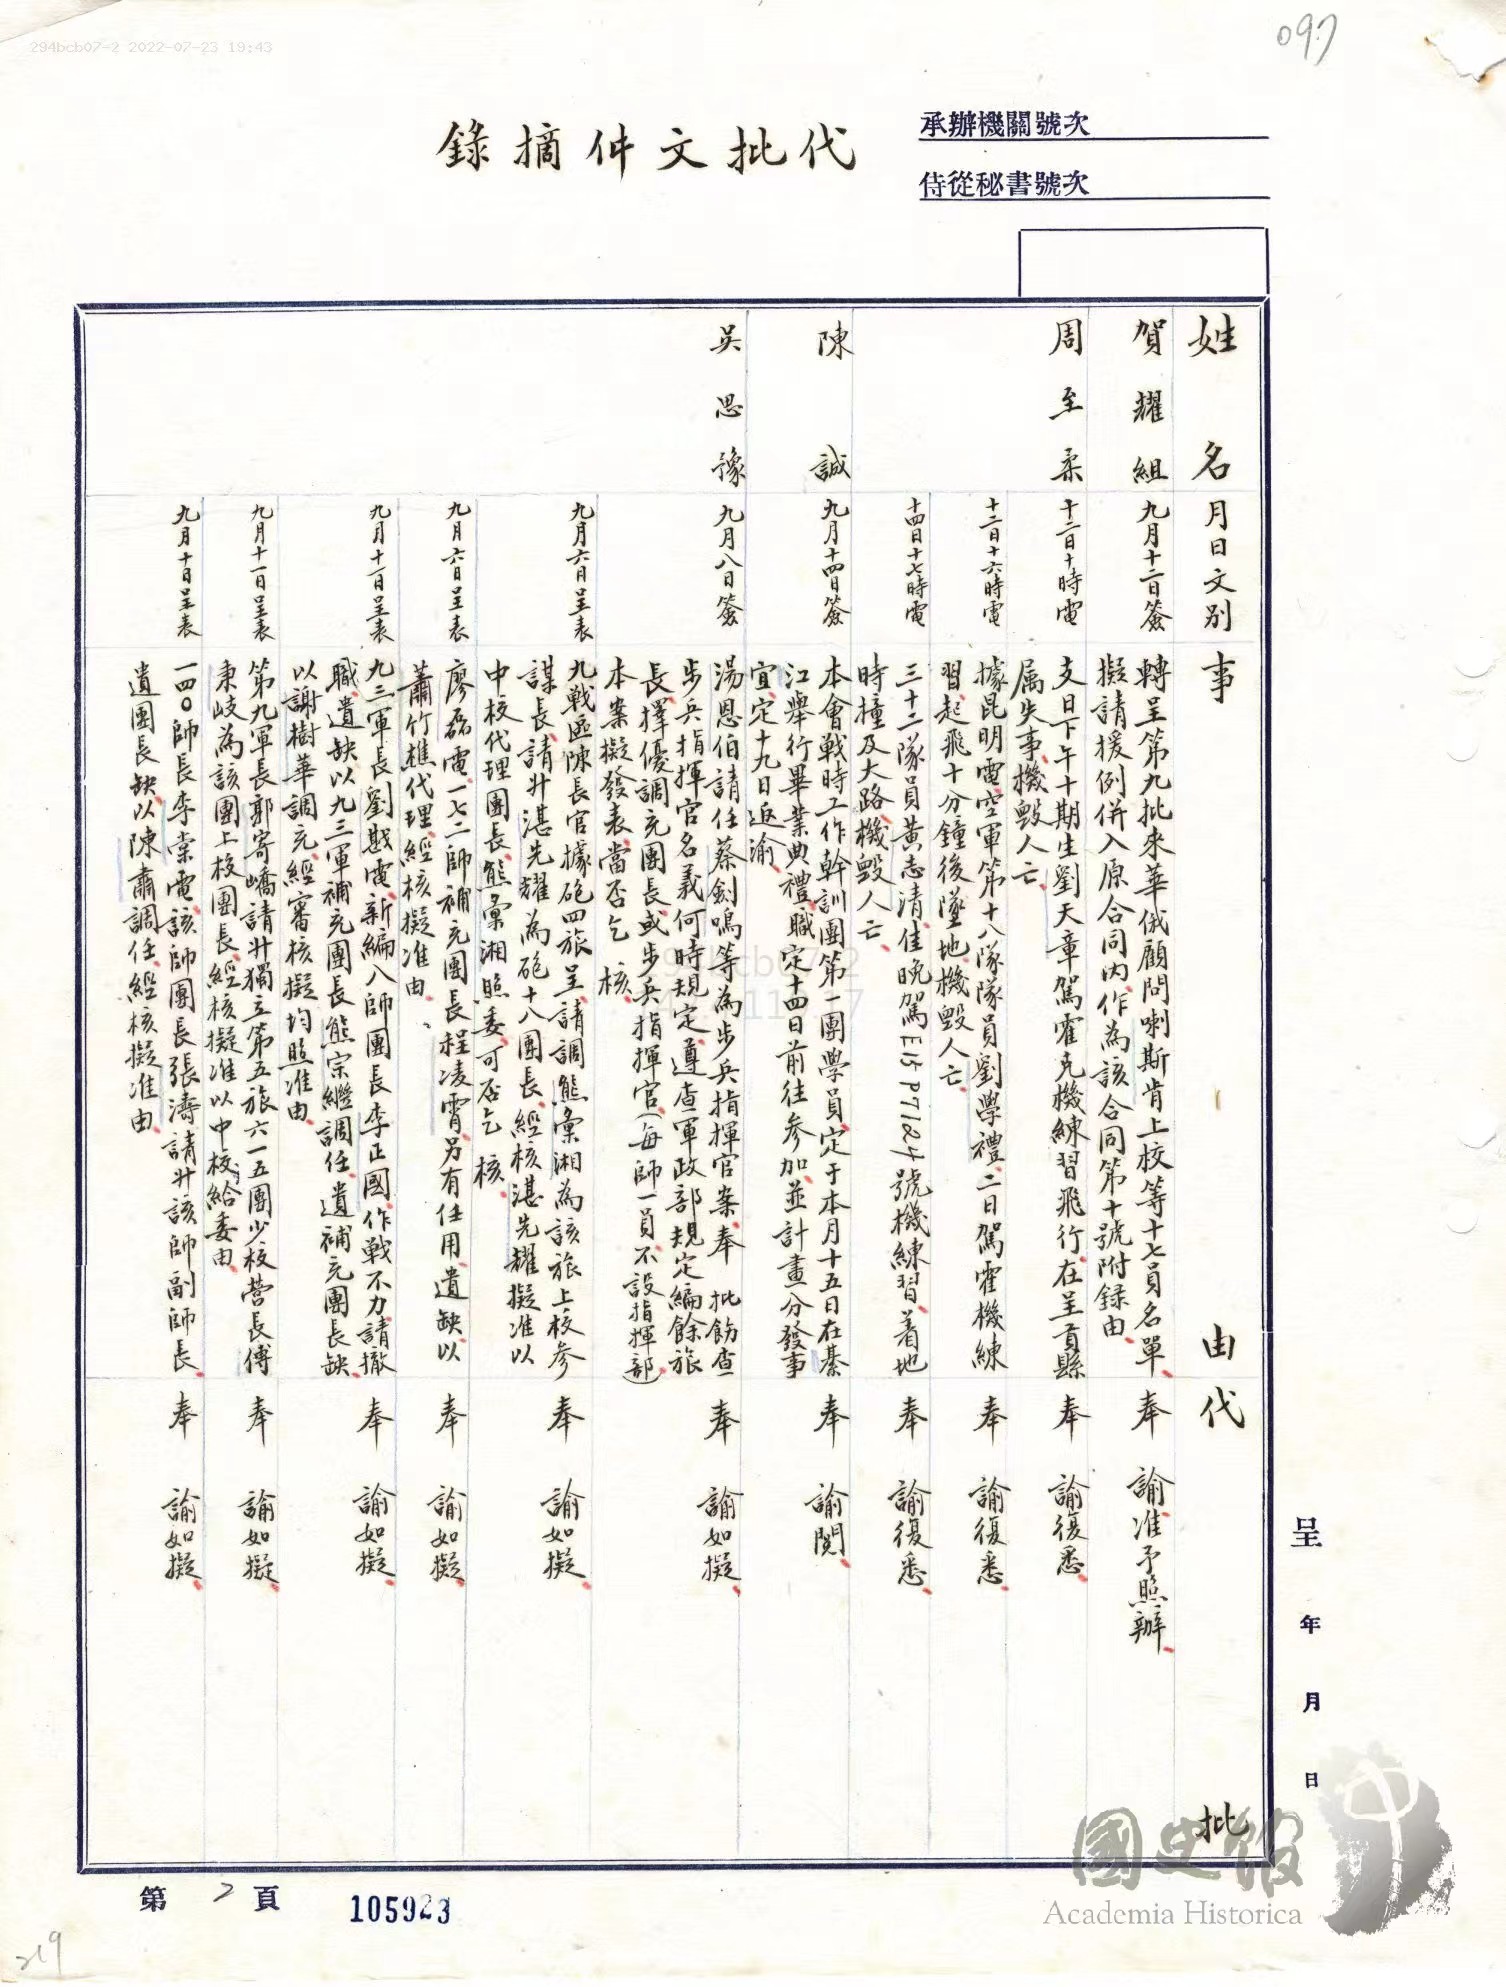 294bcb07-2 2022-07-23 19:43
097
承辦機關號次
侍從秘書號次
代批文件摘錄
姓名
月日文別
事由
代批
賀耀組
九月十二日簽
轉呈第九批來華俄顧問喇斯肯上校等十七員名單、
擬請援例併入原合同內、作為該合同第十號附錄由、
奉 諭、准予照辦、
周至柔
十二日十時電
支日下午十期生劉天章駕霍克機練習飛行、在呈貢縣
属失事、機毀人亡、
奉 諭復悉、
十二日十六時電
據昆明電、空軍第十八隊隊員劉學禮、二日駕霍機練
習、起飛十分鐘後墜地、機毀人亡、
奉 諭復悉、
十四日十七時電
三十二隊員黃志清、佳晚駕E15 P7124號機練習、着地
時撞及大路、機毀人亡、
奉 諭復悉、
陳誠
九月十四日簽
本會戰時工作幹訓團第一團學員、定于本月十五日在綦
江舉行畢業典禮、職定十四日前往參加、並計畫分發事
宜、定十九日返渝、
奉 諭閱、
吳思豫
九月八日簽
湯恩伯請任蔡劍鳴等為步兵指揮官案、奉 批飭查
步兵指揮官名義何時規定、遵查軍政部規定編餘旅
長、擇優調充團長或步兵指揮官、(每師一員、不設指揮部)
本案擬發表、當否乞 核、
奉 諭如擬、
九月六日呈表
九戰區陳長官據砲四旅呈、請調熊彙湘為該旅上校參
謀長、請升湛先耀為砲十八團長、經核湛先耀擬准以
中校代理團長、熊彙湘照委、可否乞 核、
奉 諭如擬、
九月六日呈表
廖磊電、一七二師補充團長程凌霄另有任用、遺缺以
蕭竹樵代理、經核擬准由、
奉 諭如擬、
九月十一日呈表
九三軍長劉戡電、新編八師團長李正國、作戰不力、請撤
職、遺缺以九三軍補充團長熊宗繼調任、遺補充團長缺、
以謝樹華調充、經審核擬均照准由、
奉 諭如擬、
九月十一日呈表
第九軍長郭寄嶠請升獨立第五旅六一五團少校營長傅
秉岐為該團上校團長、經核擬准以中校給委由、
奉 諭如擬、
九月十日呈表
一四〇師長李棠電、該師團長張濤請升該師副師長、
遺團長缺、以陳肅調任、經核擬准由、
奉 諭如擬、
呈 年 月 日
第2頁
105923
219
國史館
Academia Historica